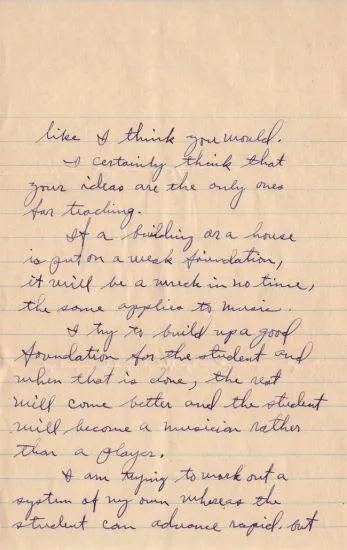 like I think you would.
I certainly think that
your ideas are the only ones
for teaching.
If a building or a house
is put on a weak foundation,
it will be a wreck in no time,
the same applies to music.
I try to build up a good
foundation for the student and
when that is done, the rest
will come better and the student
will become a musician rather
than a player.
I am trying to work out a
system of my own whereas the
student can advance rapid. but